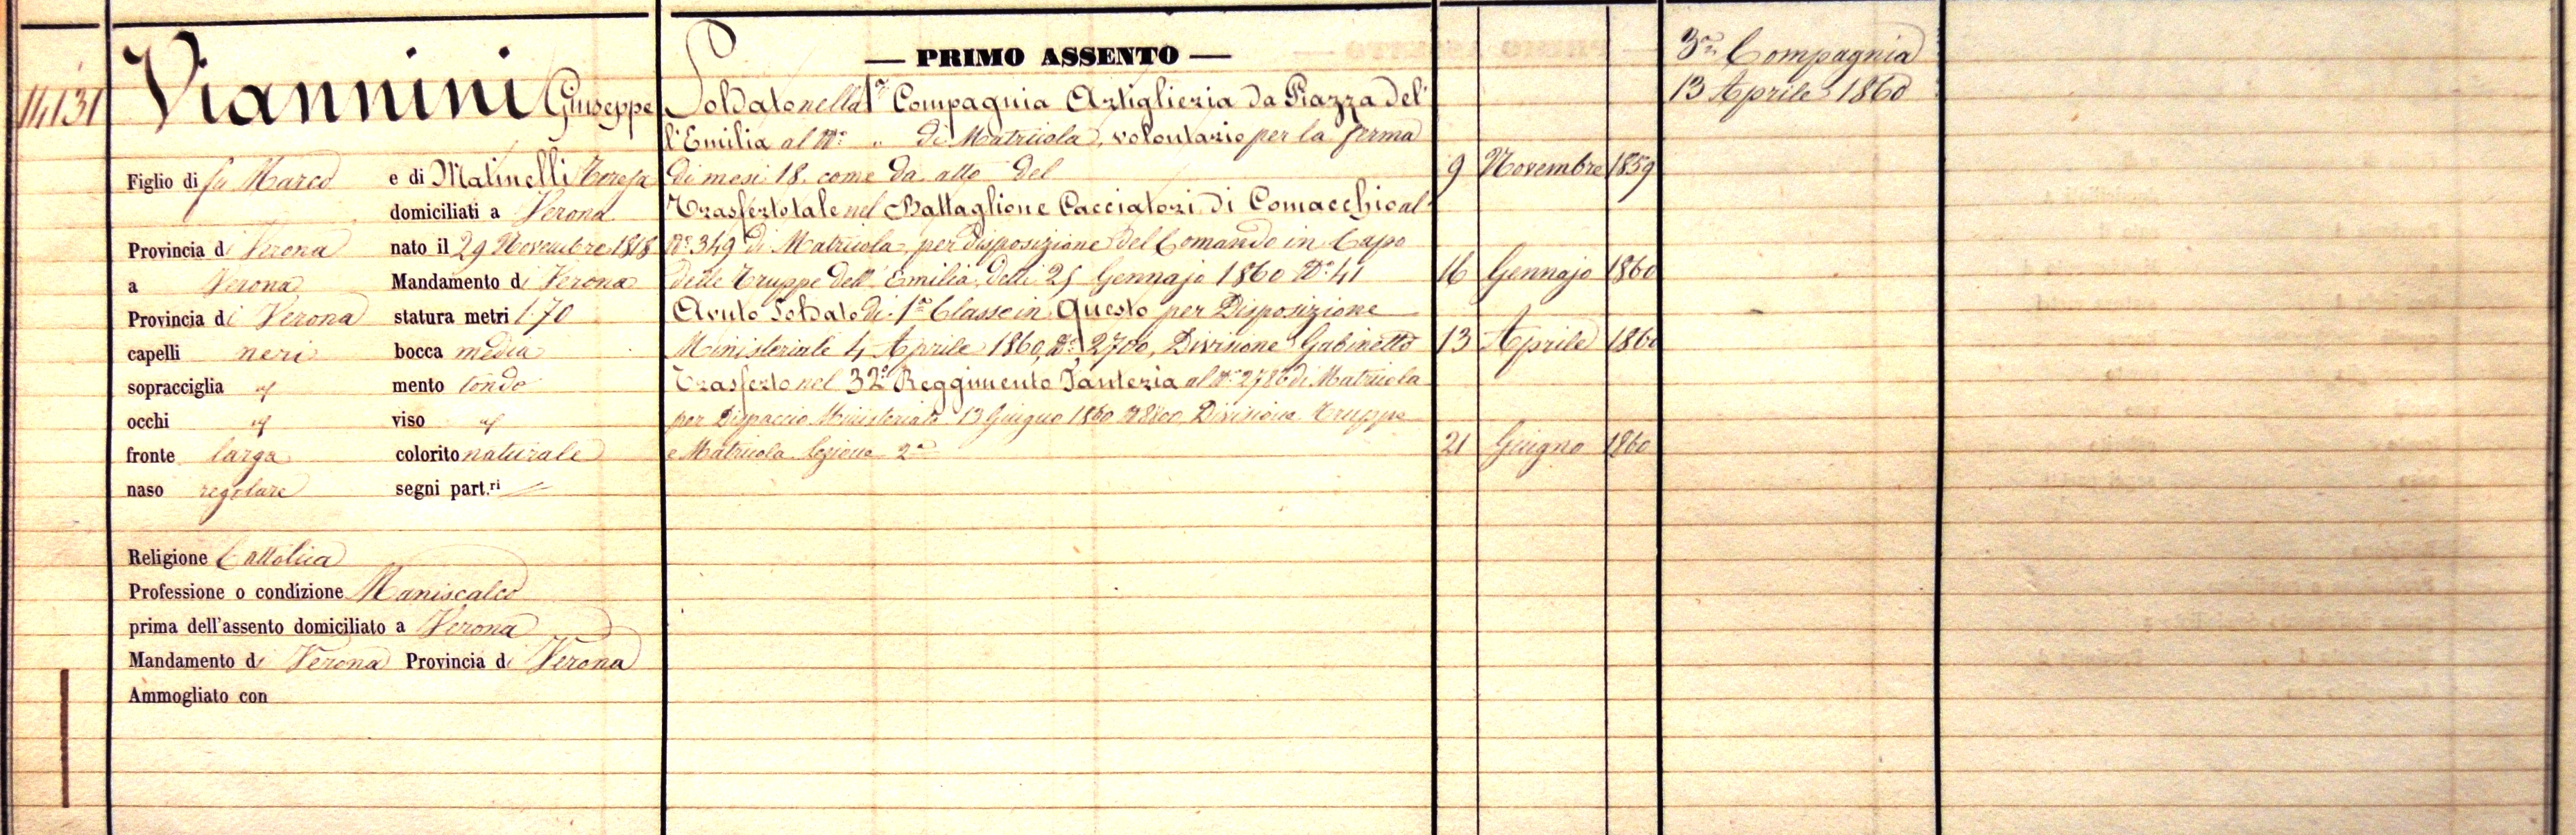 14131
Viannini Giuseppe
Figlio di fu Marco e di Matinelli Teresa
domiciliati a Verona
Provincia di Verona nato il 29 Novembre 1818
a Verona Mandamento di Verona
Provincia di Verona statura metri 1.70
capelli neri bocca media
sopracciglia id mento tondo
occhi id viso id
fronte larga colorito naturale
naso regolare segni part.ri
Religione Cattolica
Professione o condizione Maniscalco
prima dell'assento domiciliato a Verona
Mandamento di Verona Provincia di Verona
Ammogliato con
— PRIMO ASSENTO —
Soldato nella 1a Compagnia Artiglieria da Piazza del
l'Emilia al No „ di Matricola, volontario per la ferma
di mesi 18. come da atto del 9 Novembre 1859
Trasferto tale nel Battaglione Cacciatori di Comacchio al
No 349 di Matricola per disposizione del Comando in Capo
delle Truppe dell'Emilia delli 25 Gennajo 1860 No 41 16 Gennajo 1860
Avuto Soldato di 1a Classe in Questo per Disposizione
Ministeriale 4 Aprile 1860, No 2700, Divisione Gabinetto 13 Aprile 1860
Trasferto nel 32o Reggimento Fanteria al No 2786 di Matricola
per Dispaccio Ministeriale 13 Giugno 1860 No 8800 Divisione Truppe
e Matricola Sezione 2a 21 Giugno 1860
3a Compagnia
13 Aprile 1860